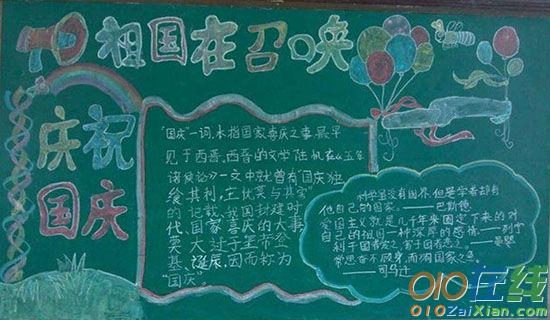 祖国在召唤
庆祝
国庆
"国庆"一词,本指国家喜庆之事,最早
见于西晋,西晋的文学陆机在《五等
诸侯论》一文中就曾有"国庆独
飨其利,主忧莫与其害"
的记载,我国封建时
代,国家喜庆的大事
莫大过于皇帝登
基、诞辰,因而称为
"国庆"。
科学虽没有国界,但是学者却有
他自己的国家。——巴斯德
爱国主义就是几千年来固定下来的对
自己的祖国一种深厚的感情。——列宁
利于国者爱之,害于国者恶之。——晏婴
常思奋不顾身,而殉国家之急。
——司马迁
010在线
010ZaiXian.com